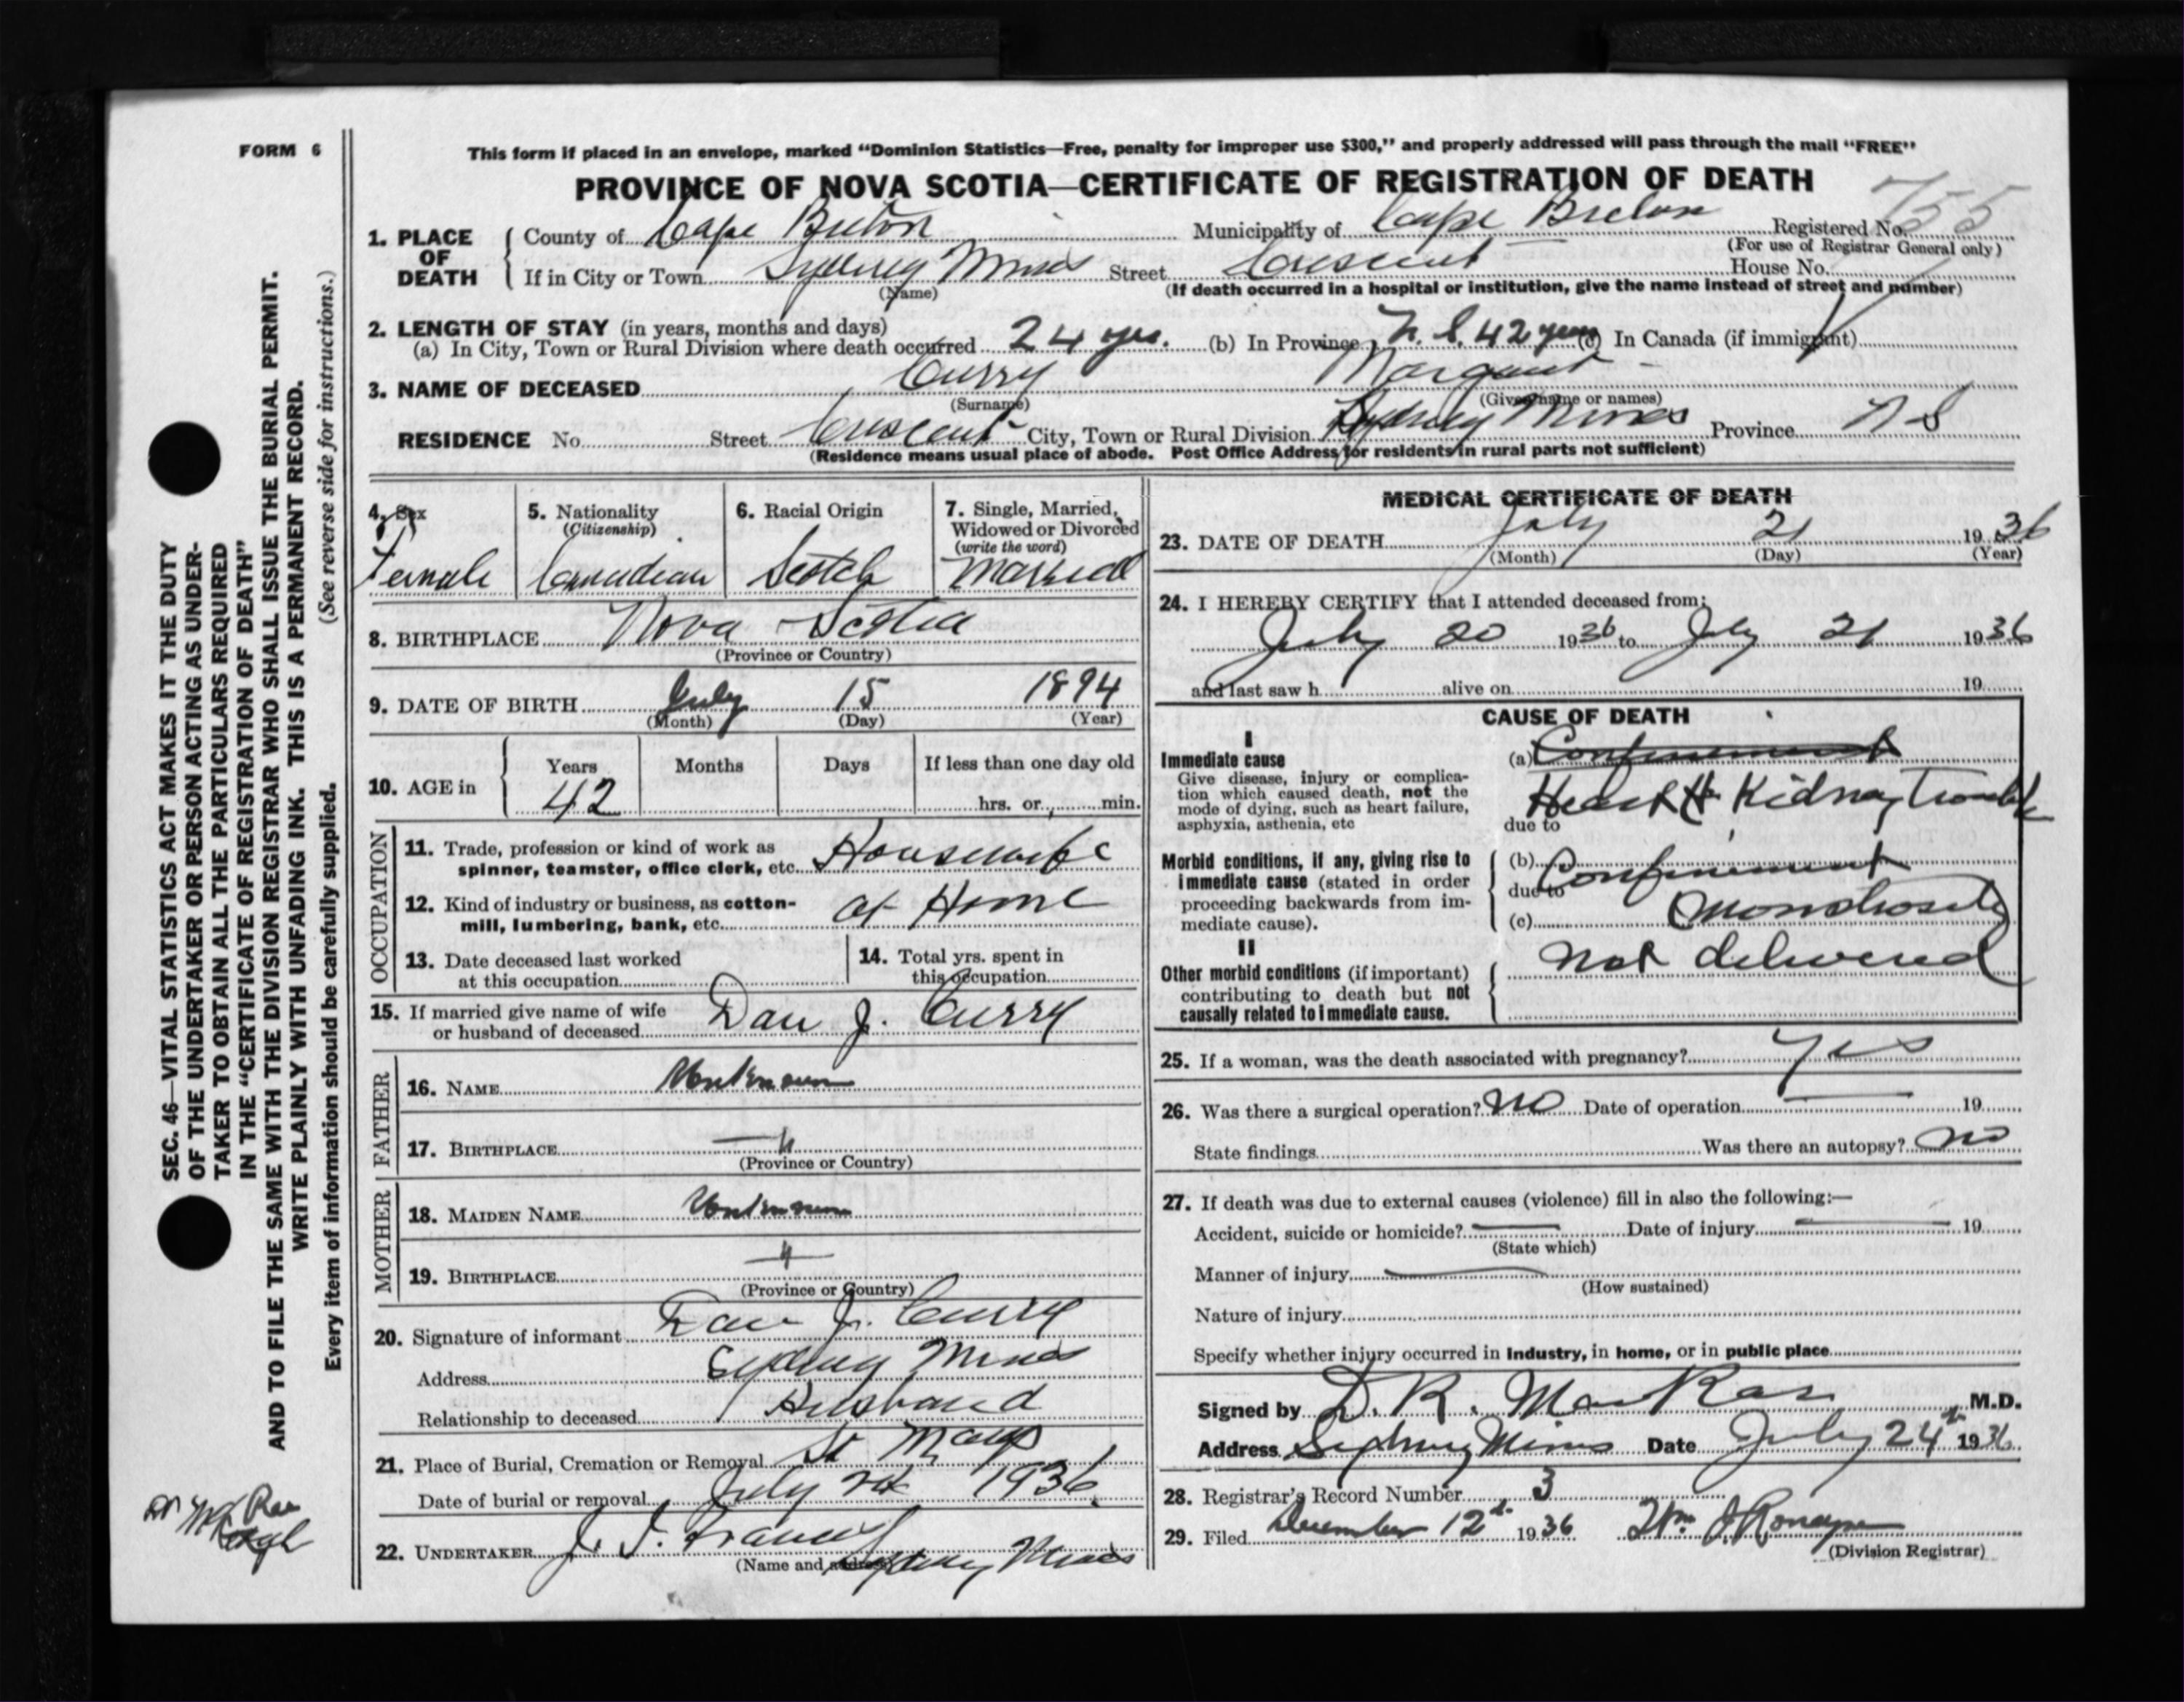 FORM 6
This form if placed in an envelope, marked "Dominion Statistics—Free, penalty for improper use $300," and properly addressed will pass through the mail "FREE"
PROVINCE OF NOVA SCOTIA—CERTIFICATE OF REGISTRATION OF DEATH
755
1. PLACE OF DEATH County of Cape Breton Municipality of Cape Breton Registered No.
(For use of Registrar General only)
If in City or Town Sydney Mines Street Crescent House No.
(Name) (If death occurred in a hospital or institution, give the name instead of street and number)
2. LENGTH OF STAY (in years, months and days)
(a) In City, Town or Rural Division where death occurred 24 yrs. (b) In Province N.S. 42 years (c) In Canada (if immigrant)
3. NAME OF DECEASED Curry Margaret
(Surname) (Given name or names)
RESIDENCE No. Street Crescent City, Town or Rural Division Sydney Mines Province N S
(Residence means usual place of abode. Post Office Address for residents in rural parts not sufficient)
4. Sex 5. Nationality 6. Racial Origin 7. Single, Married, Widowed or Divorced
(Citizenship) (write the word)
Female Canadian Scotch Married
8. BIRTHPLACE Nova Scotia
(Province or Country)
9. DATE OF BIRTH July 15 1894
(Month) (Day) (Year)
10. AGE in Years Months Days If less than one day old
42 hrs. or min.
OCCUPATION
11. Trade, profession or kind of work as spinner, teamster, office clerk, etc. Housewife
12. Kind of industry or business, as cotton-mill, lumbering, bank, etc. at Home
13. Date deceased last worked at this occupation
14. Total yrs. spent in this occupation
15. If married give name of wife or husband of deceased Dan J. Curry
FATHER
16. NAME Unknown
17. BIRTHPLACE "
(Province or Country)
MOTHER
18. MAIDEN NAME Unknown
19. BIRTHPLACE "
(Province or Country)
20. Signature of informant Dan J. Curry
Address Sydney Mines
Relationship to deceased Husband
21. Place of Burial, Cremation or Removal St Marys
Date of burial or removal July 1936
22. UNDERTAKER J. J. Francis
(Name and address) Sydney Mines
MEDICAL CERTIFICATE OF DEATH
23. DATE OF DEATH July 21 1936
(Month) (Day) (Year)
24. I HEREBY CERTIFY that I attended deceased from:
July 20 1936 to July 21 1936
and last saw h alive on 19
CAUSE OF DEATH
I
Immediate cause (a) Confinement
Give disease, injury or complication which caused death, not the mode of dying, such as heart failure, asphyxia, asthenia, etc
Heart & Kidney Trouble
due to
Morbid conditions, if any, giving rise to immediate cause (stated in order proceeding backwards from immediate cause).
(b) Confinement
due to
(c) (Monstrosity
II
Other morbid conditions (if important) contributing to death but not causally related to immediate cause.
not delivered
25. If a woman, was the death associated with pregnancy? Yes
26. Was there a surgical operation? no Date of operation 19
State findings Was there an autopsy? no
27. If death was due to external causes (violence) fill in also the following:—
Accident, suicide or homicide? Date of injury 19
(State which)
Manner of injury
(How sustained)
Nature of injury
Specify whether injury occurred in industry, in home, or in public place
Signed by D. R. MacRae M.D.
Address Sydney Mines Date July 24th 1936
28. Registrar's Record Number 3
29. Filed December 12th 1936 Wm J Ronayne
(Division Registrar)
SEC. 46—VITAL STATISTICS ACT MAKES IT THE DUTY
OF THE UNDERTAKER OR PERSON ACTING AS UNDER-
TAKER TO OBTAIN ALL THE PARTICULARS REQUIRED
IN THE "CERTIFICATE OF REGISTRATION OF DEATH"
AND TO FILE THE SAME WITH THE DIVISION REGISTRAR WHO SHALL ISSUE THE BURIAL PERMIT.
WRITE PLAINLY WITH UNFADING INK. THIS IS A PERMANENT RECORD.
Every item of information should be carefully supplied. (See reverse side for instructions.)
Dr McRae